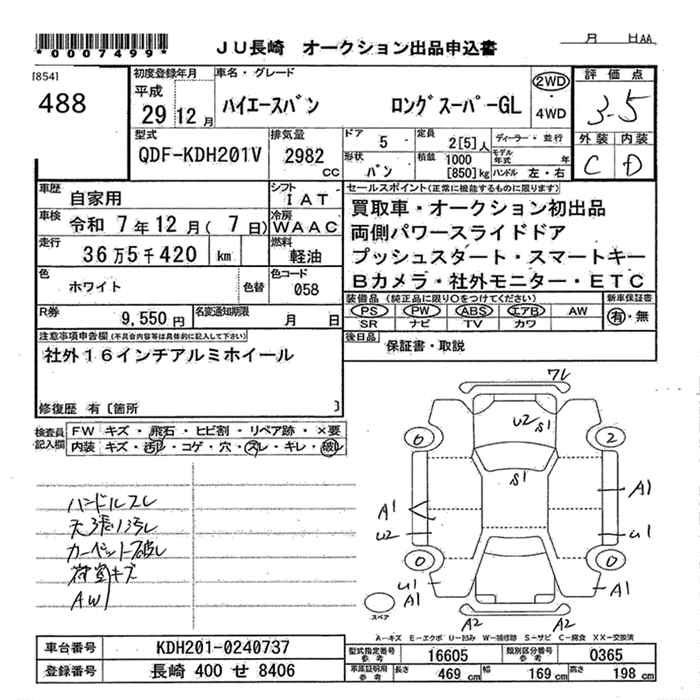 *0007499*
JU長崎 オークション出品申込書
月 日AA
[854]
488
初度登録年月
平成
29年12月
車名・グレード
ハイエースバン ロングスーパーGL
2WD
・
4WD
評価点
3.5
外装 内装
C D
型式
QDF-KDH201V
排気量
2982
CC
ドア
5
定員
2[5]人
ディーラー・並行
形状
バン
積載
1000
[850]kg
モデル年式 年
ハンドル 左・右
車歴
自家用
シフト
IAT
車検
令和 7年12月(7日)
冷房
WAAC
走行
36万5千420 km
燃料
軽油
色
ホワイト
色替
色コード
058
R券
9,550円
名変通知期限
月 日
セールスポイント(正常に機能するものに限ります)
買取車・オークション初出品
両側パワースライドドア
プッシュスタート・スマートキー
Bカメラ・社外モニター・ETC
装備品(純正品に限り○をつけてください)
新車保証書
PS PW ABS エアB AW
SR ナビ TV カワ
有・無
後日品
保証書・取説
注意事項申告欄(不具合内容等は具体的に記入して下さい)
社外16インチアルミホイール
修復歴 有[箇所 ]
検査員記入欄
FW キズ・飛石・ヒビ割・リペア跡・×要
内装 キズ・汚レ・コゲ・穴・スレ・キレ・破レ
ハンドルスレ
天張り汚レ
カーペット破レ
荷室キズ
AW
ワレ
U2 S1
6
2
S1
A1
A1
U2
U1
0
0
U1
A1
A1
スペア
A2
A2
A…キズ E…エクボ U…凹み W…補修跡 S…サビ C…腐食 XX…交換済
車台番号
KDH201-0240737
登録番号
長崎 400 せ 8406
型式指定番号
参考
16605
類別区分番号
参考
0365
車庫証明用
参考
長さ
469cm
幅
169cm
高さ
198cm